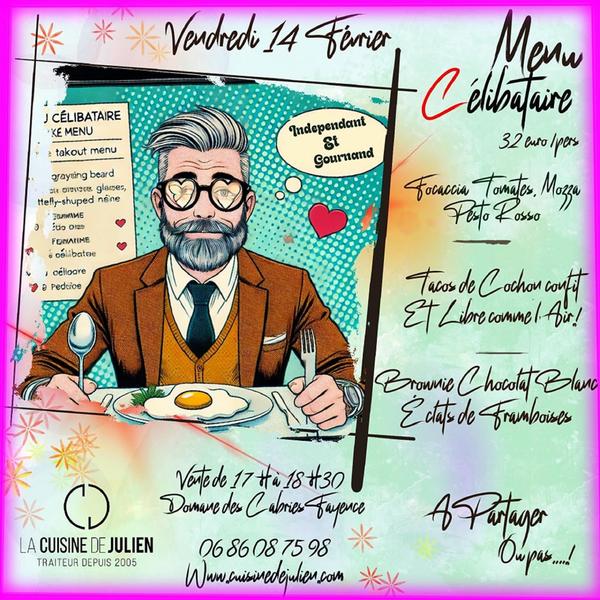 Vendredi 14 Février
Menu
Célibataire
32 euro /pers
CÉLIBATAIRE
KE MENU
takout menu
graying beard
Independant
Et
Gournand
Focaccia Tomates, Mozza
Pesto Rosso
Tacos de Cochon confit
Et Libre comme l'Air!
Brownie Chocolat Blanc
Éclats de Framboises
Vente de 17 H à 18 H30
Domane des Cabries Fayence
06 86 08 75 98
Www.cuisinedejulien.com
A Partager
Ou pas....!
LA CUISINE DE JULIEN
TRAITEUR DEPUIS 2005